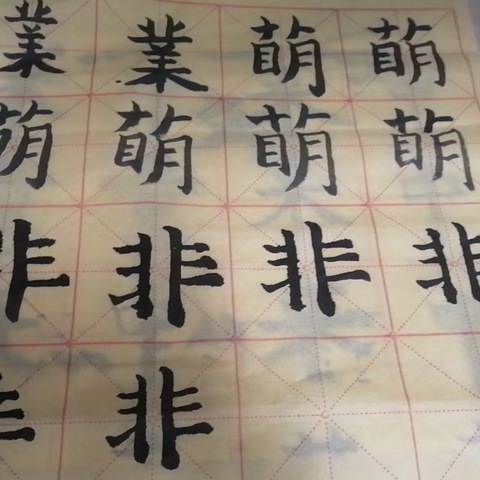 業業萌萌
萌萌萌萌
非非非非
非非